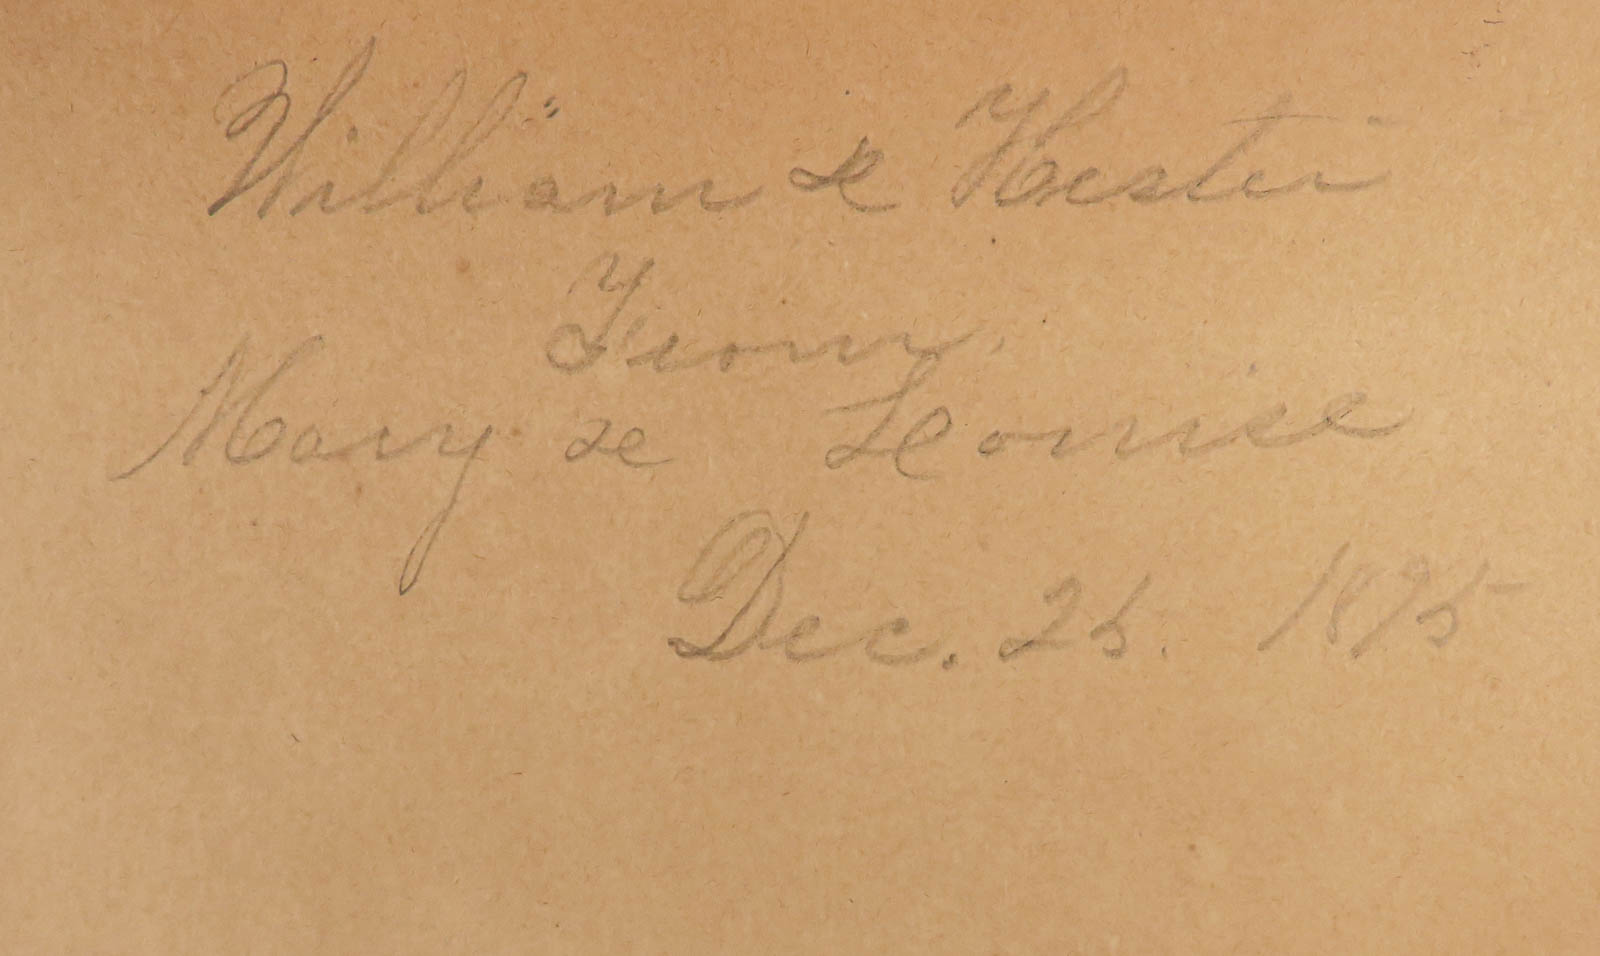 William & Hester
From
Mary & Louise
Dec. 25. 1895